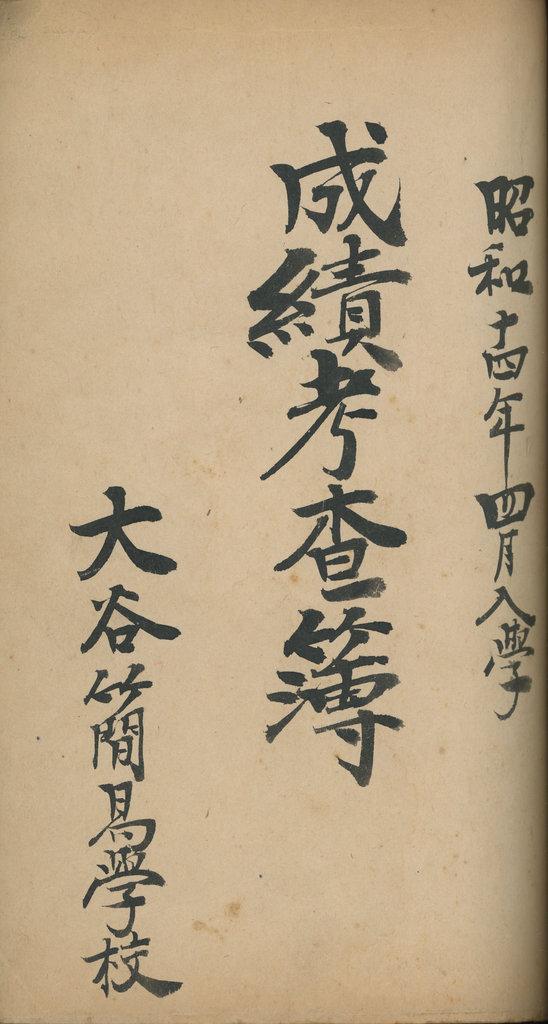 昭和十四年四月入學
成績考査簿
大谷簡易學校